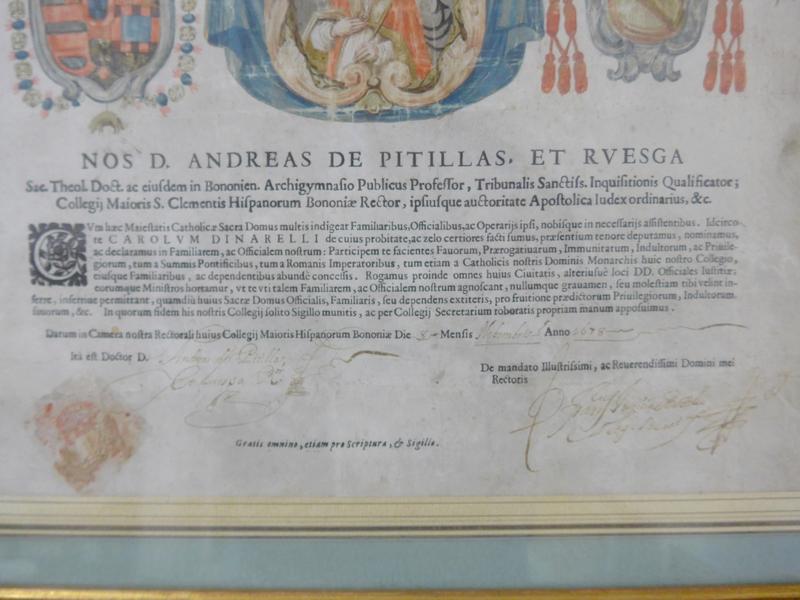 NOS D. ANDREAS DE PITILLAS, ET RVESGA
Sac. Theol. Doct. ac eiusdem in Bononien. Archigymnasio Publicus Professor, Tribunalis Sanctiss. Inquisitionis Qualificator;
Collegij Maioris S. Clementis Hispanorum Bononiæ Rector, ipsiusque auctoritate Apostolica Iudex ordinarius, &c.
CVm hæc Maiestatis Catholicæ Sacra Domus multis indigeat Familiaribus, Officialibus, ac Operarijs ipsi, nobisque in necessarijs assistentibus. Idcirco
te CAROLVM DINARELLI de cuius probitate, ac zelo certiores facti sumus, præsentium tenore deputamus, nominamus,
ac declaramus in Familiarem, ac Officialem nostrum: Participem te facientes Fauorum, Prærogatiuarum, Immunitatum, Indultorum, ac Priuile-
giorum, tum a Summis Pontificibus, tum a Romanis Imperatoribus, tum etiam a Catholicis nostris Dominis Monarchis huic nostro Collegio,
eiusque Familiaribus, ac dependentibus abundè concessis. Rogamus proinde omnes huius Ciuitatis, alteriusuè loci DD. Officiales Iustitiæ;
eorumque Ministros hortamur, vt te vti talem Familiarem, ac Officialem nostrum agnoscant, nullumque grauamen, seu molestiam tibi velint in-
ferre, inferriue permittant, quamdiù huius Sacræ Domus Officialis, Familiaris, seu dependens extiteris, pro fruitione prædictorum Priuilegiorum, Indultorum,
fauorum, &c. In quorum fidem his nostris Collegij solito Sigillo munitis, ac per Collegij Secretarium roboratis propriam manum apposuimus.
Datum in Camera nostra Rectorali huius Collegij Maioris Hispanorum Bononiæ Die 8 Mensis Anno 1678
Ita est Doctor D.
De mandato Illustrissimi, ac Reuerendissimi Domini mei
Rectoris
Gratis omnino, etiam pro Scriptura, & Sigillo.